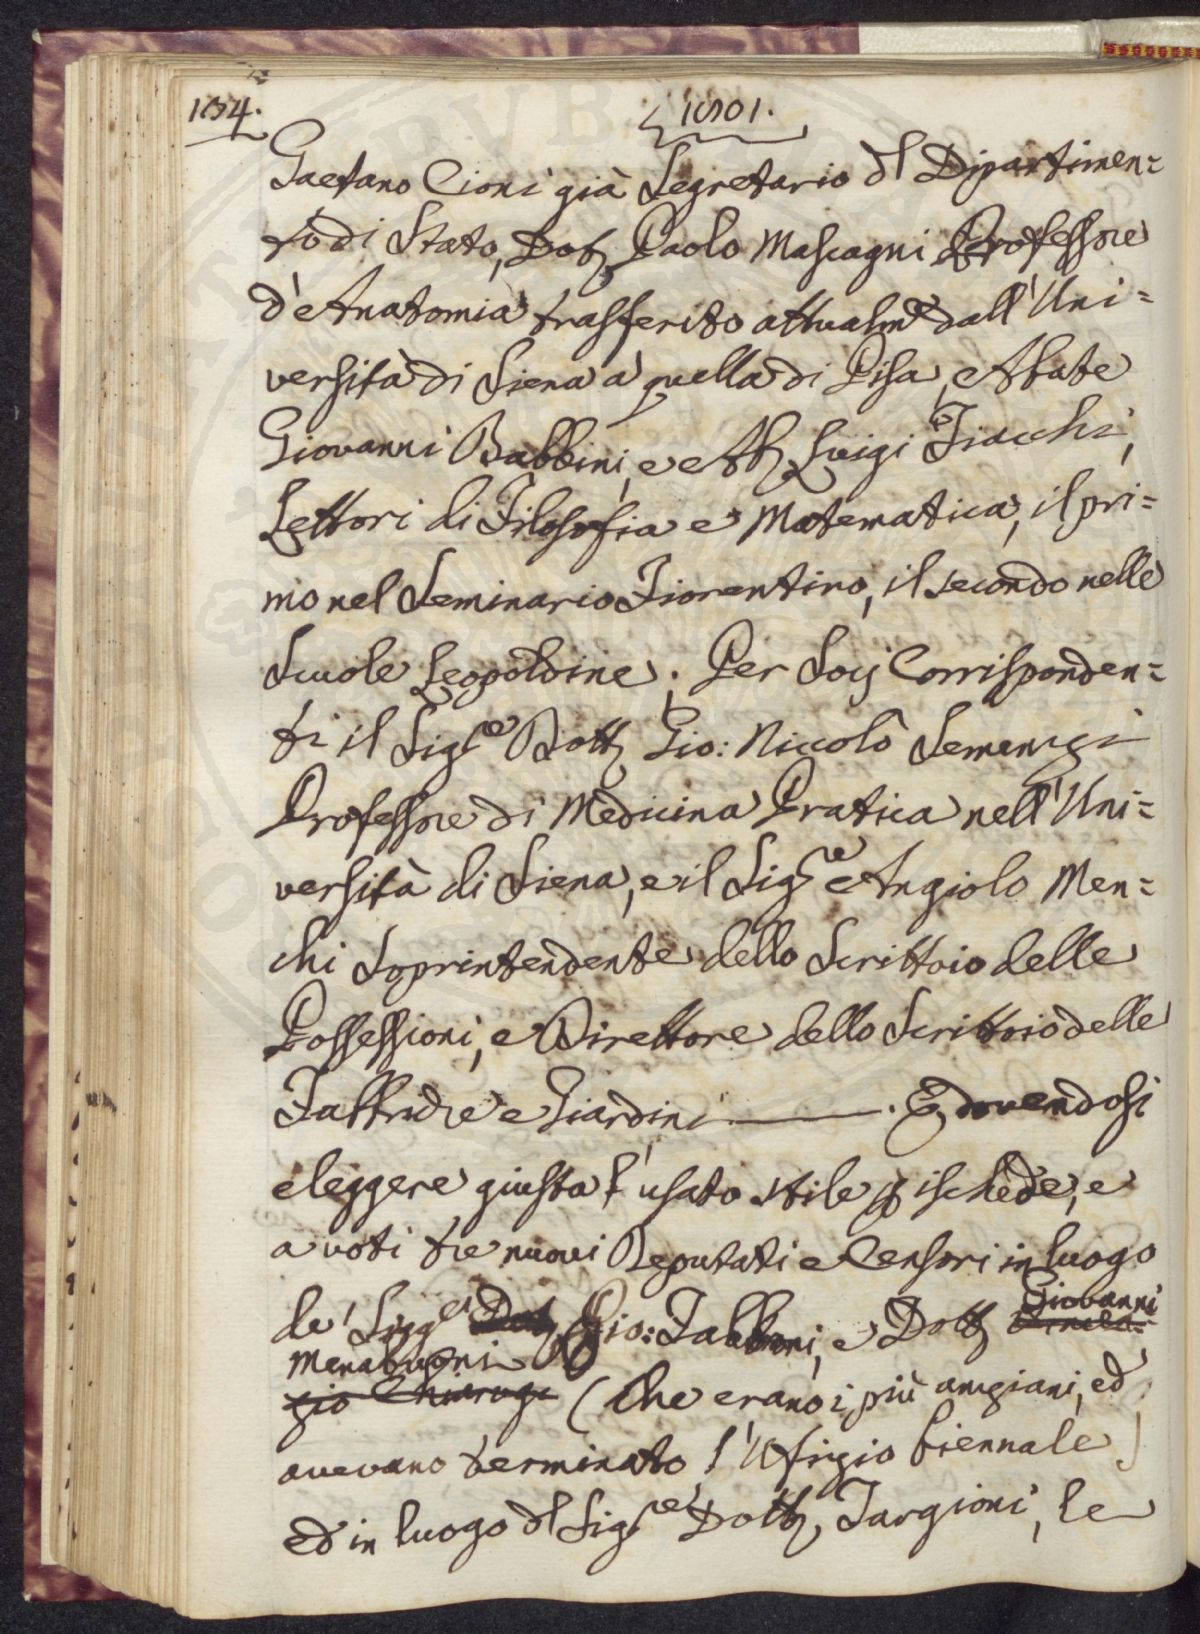 184.
1801.
Gaetano Cioni già Segretario dl Dipartimen=
to di Stato, Dot. Paolo Mascagni Professore
d'Anatomia trasferito attualmte dall'Uni=
versità di Siena a quella di Pisa, Abate
Giovanni Babbini, e Ab. Luigi Fiacchi,
Lettori di Filosofia e Matematica, il pri=
mo nel Seminario Fiorentino, il secondo nelle
Scuole Leopoldine. Per Socj Corrisponden=
ti il Sigre Dott. Gio: Niccolò Semenzi
Professore di Medicina Pratica nell'Uni=
versità di Siena, e il Sigre Angiolo Men=
chi Soprintendente dello Scrittoio delle
Possessioni, e Direttore dello Scrittoio delle
Fabbriche e Giardini. E dovendosi
eleggere giusta l'usato stile p ischede, e
a voti tre nuovi Deputati e Censori in luogo
Giovanni
de' Sigg.ri Gio: Fabbroni, e Dott.
Menabuoni
gio Chiarugi (che erano i più anziani, ed
avevano terminato l'Ufizio biennale)
ed in luogo dl Sigre Dott. Targioni, le